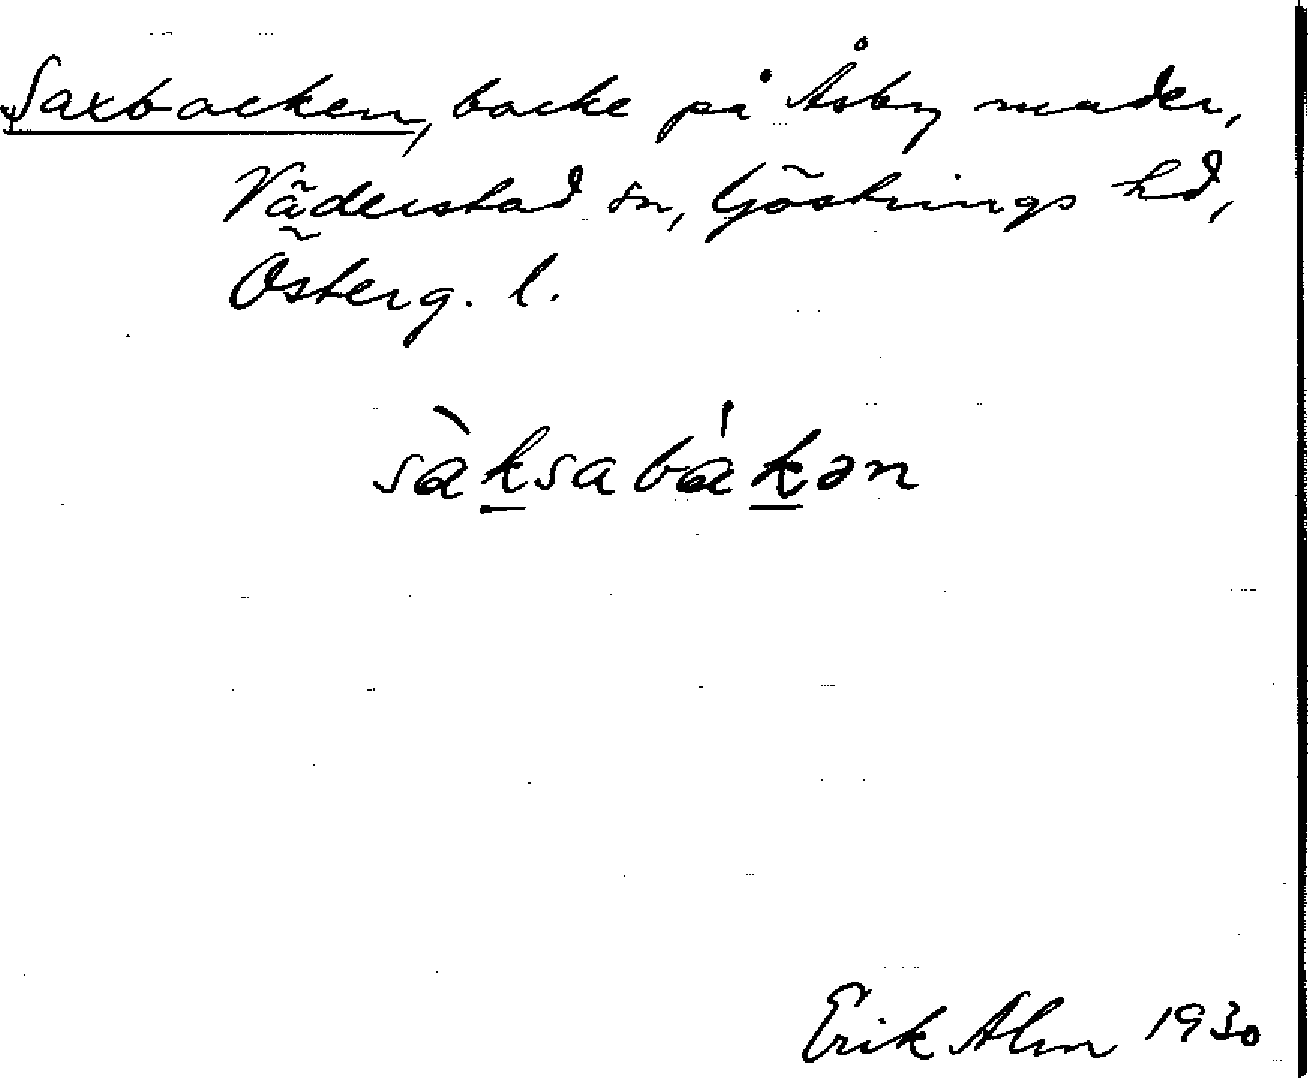 Saxbacken, backe på Åsby mader,
Väderstad sn, Göstrings hd,
Österg. l.
sàksabákən
Erik Alm 1930